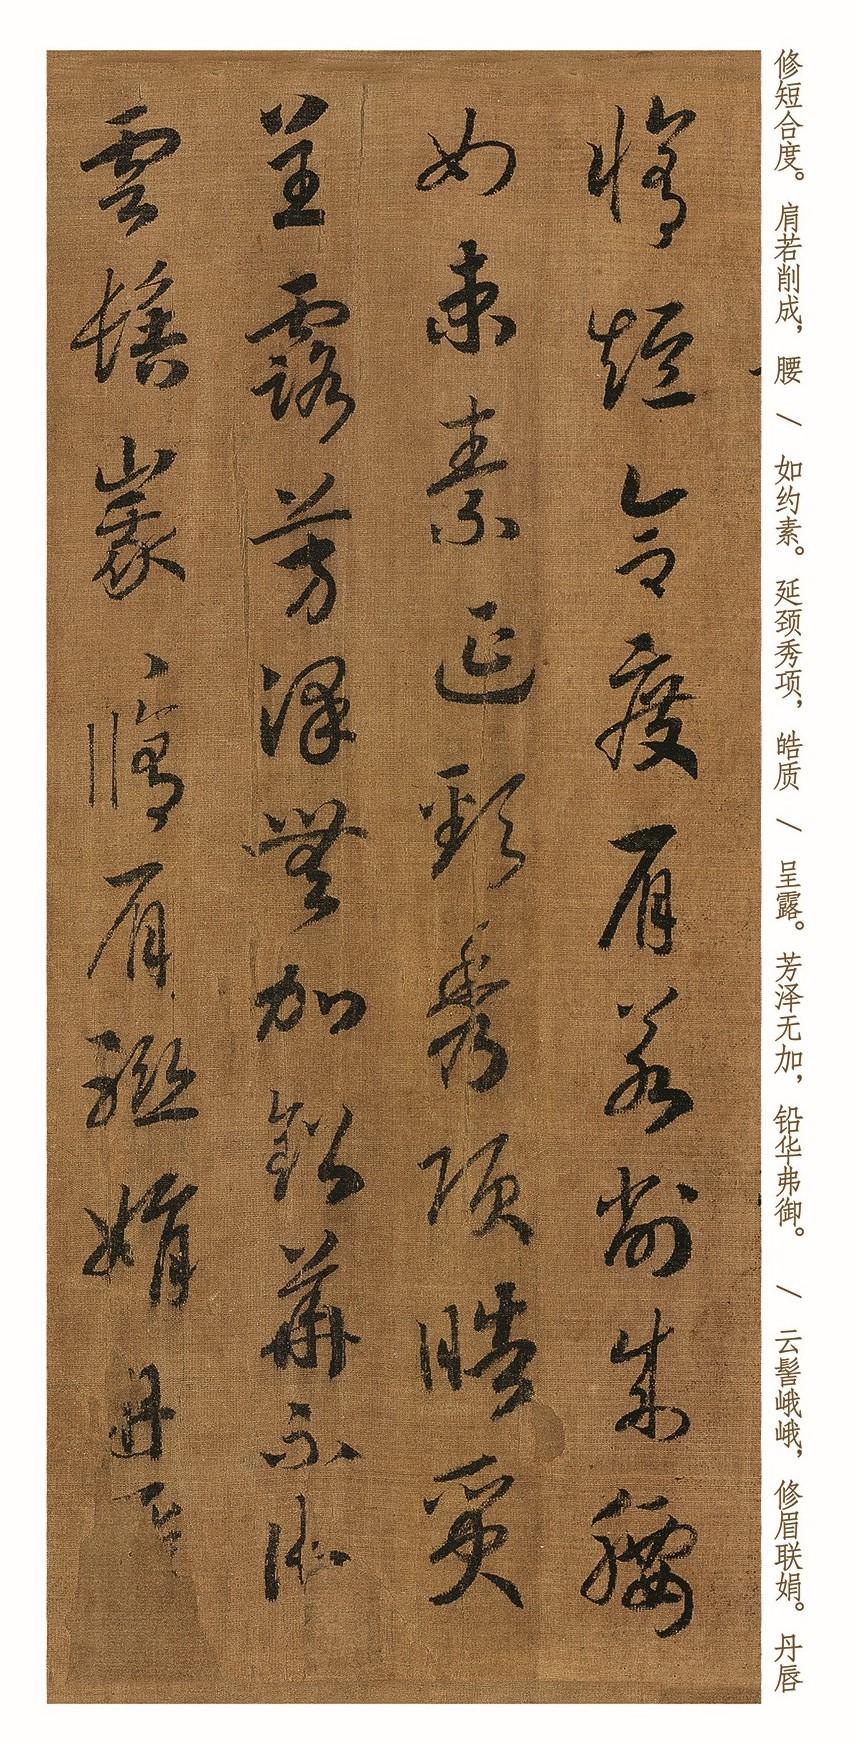 修短合度。肩若削成，腰 \ 如约素。延颈秀项，皓质 \ 呈露。芳泽无加，铅华弗御。 \ 云髻峨峨，修眉联娟。丹唇
脩短合度肩若削成腰
如束素延頸秀項皓質
呈露芳澤無加鉛華不御
雲髻峩〻脩眉聯娟丹